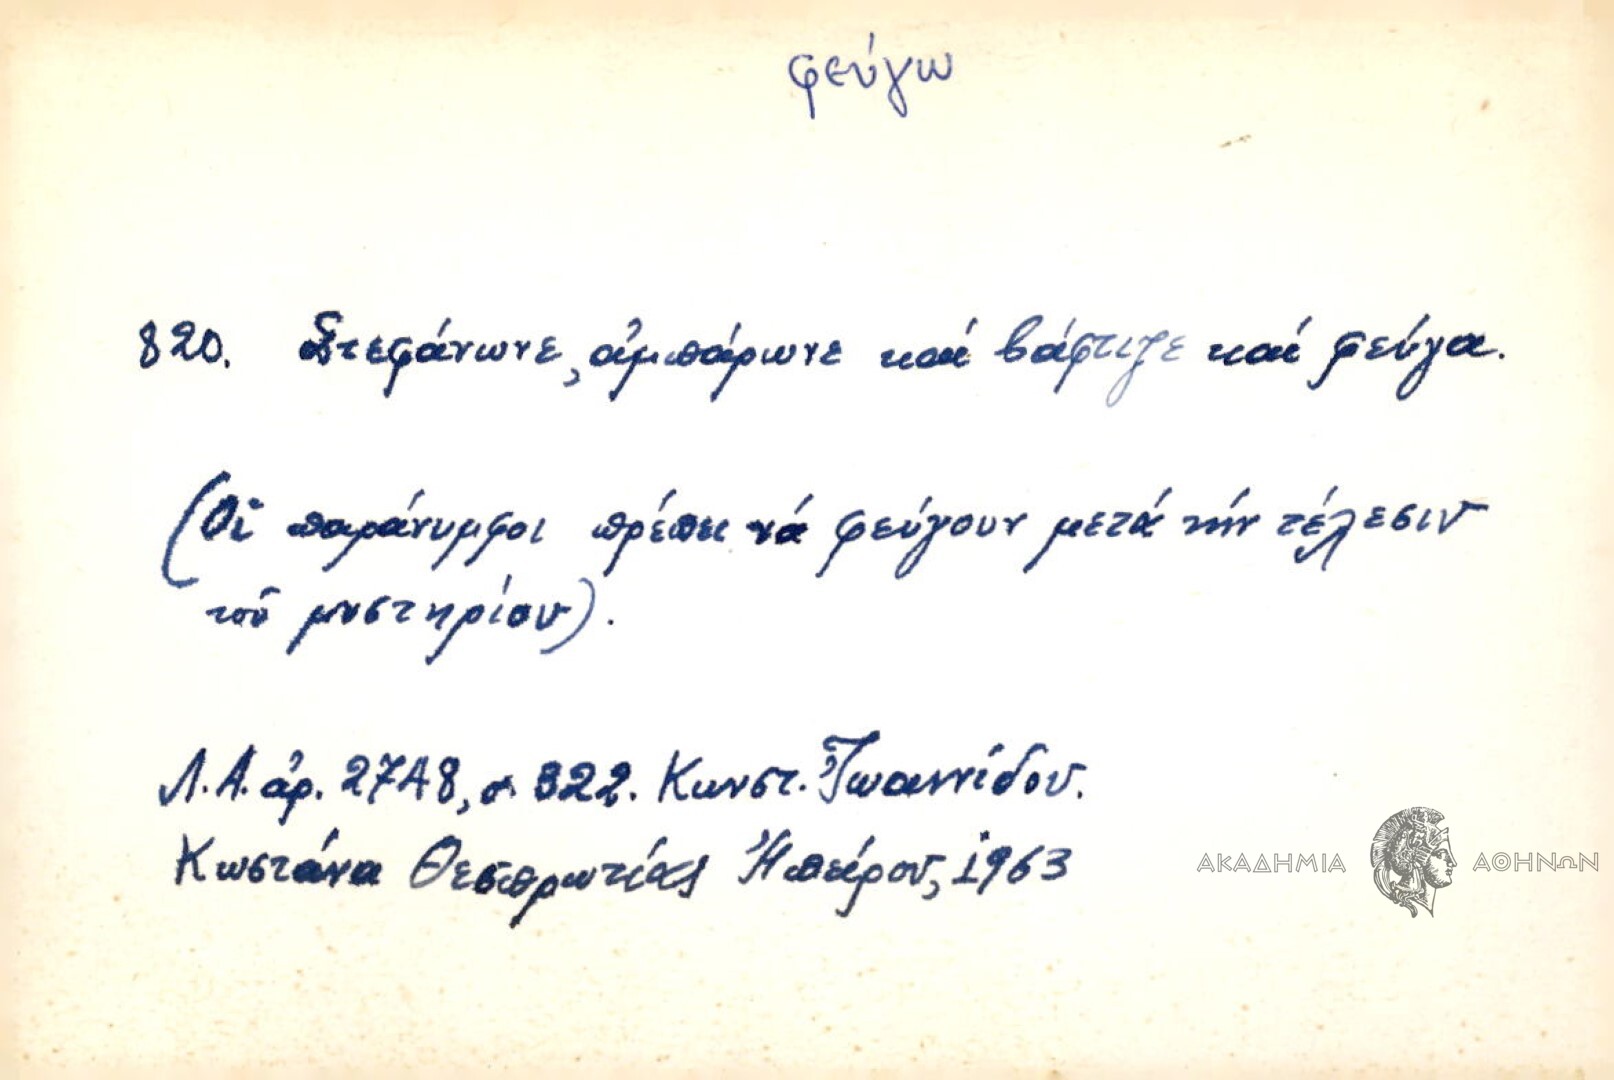 φεύγω
820. Στεφάνωνε, ἀμπάρωνε καί βάφτιζε καί φεύγα.
(Οἱ παράνυμφοι πρέπει νά φεύγουν μετά τήν τέλεσιν
τοῦ μυστηρίου).
Λ.Α. ἀρ. 2748, σ 322. Κωνστ. Ἰωαννίδου.
Κωστάνα Θεσπρωτίας Ἠπείρου, 1963
ΑΚΑΔΗΜΙΑ ΑΘΗΝΩΝ